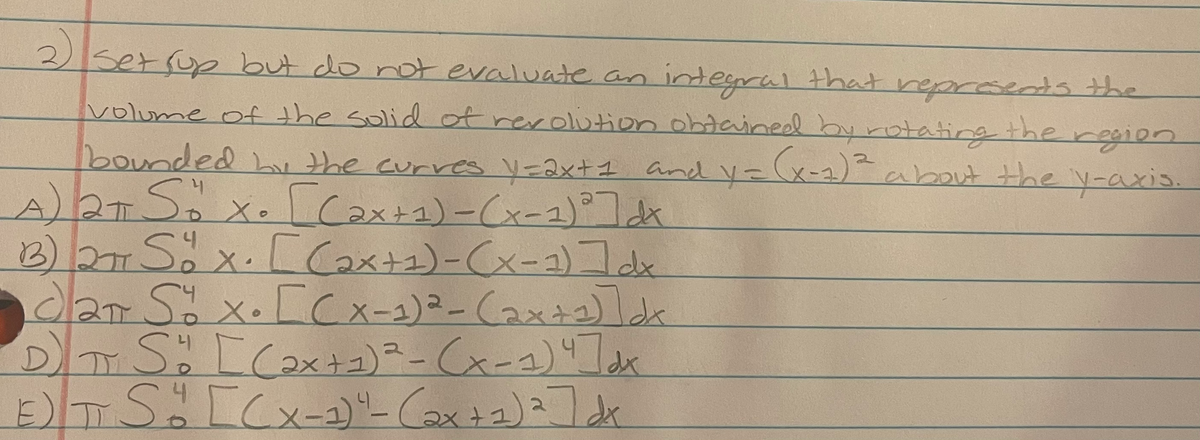 2) Set sup but do not evaluate an integral that represents the
volume of the solid of revolution obtained by rotating the region
bounded by the curves y=2x+1 and y=(x-1)² about the y-axis.
A) 2π∫₀⁴ x·[(2x+1)-(x-1)²]dx
B) 2π∫₀⁴ x·[(2x+1)-(x-1)]dx
C) 2π∫₀⁴ x·[(x-1)²-(2x+1)]dx
D) π∫₀⁴ [(2x+1)²-(x-1)⁴]dx
E) π∫₀⁴ [(x-1)⁴-(2x+1)²]dx